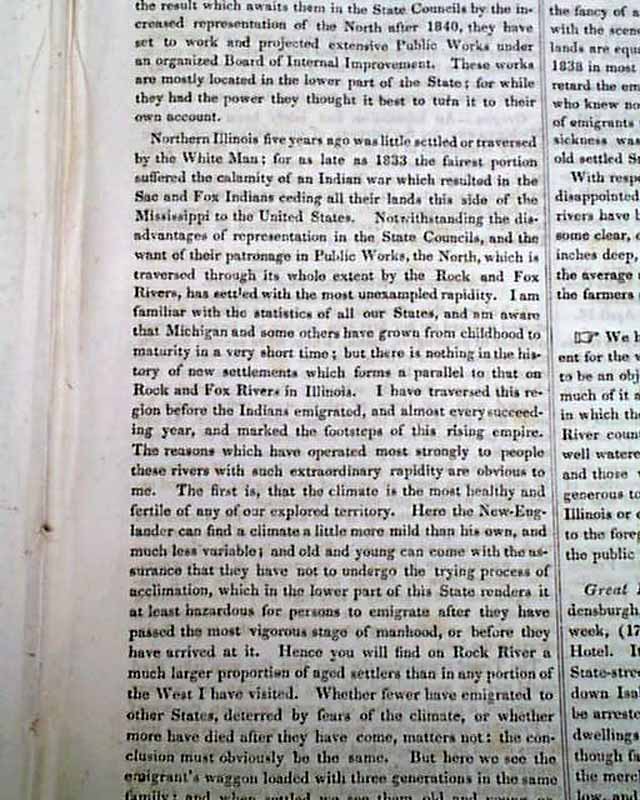 the result which awaits them in the State Councils by the in-
creased representation of the North after 1840, they have
set to work and projected extensive Public Works under
an organized Board of Internal Improvement. These works
are mostly located in the lower part of the State; for while
they had the power they thought it best to turn it to their
own account.
Northern Illinois five years ago was little settled or traversed
by the White Man; for as late as 1833 the fairest portion
suffered the calamity of an Indian war which resulted in the
Sac and Fox Indians ceding all their lands this side of the
Mississippi to the United States. Notwithstanding the dis-
advantages of representation in the State Councils, and the
want of their patronage in Public Works, the North, which is
traversed through its whole extent by the Rock and Fox
Rivers, has settled with the most unexampled rapidity. I am
familiar with the statistics of all our States, and am aware
that Michigan and some others have grown from childhood to
maturity in a very short time; but there is nothing in the his-
tory of new settlements which forms a parallel to that on
Rock and Fox Rivers in Illinois. I have traversed this re-
gion before the Indians emigrated, and almost every succeed-
ing year, and marked the footsteps of this rising empire.
The reasons which have operated most strongly to people
these rivers with such extraordinary rapidity are obvious to
me. The first is, that the climate is the most healthy and
fertile of any of our explored territory. Here the New-Eng-
lander can find a climate a little more mild than his own, and
much less variable; and old and young can come with the as-
surance that they have not to undergo the trying process of
acclimation, which in the lower part of this State renders it
at least hazardous for persons to emigrate after they have
passed the most vigorous stage of manhood, or before they
have arrived at it. Hence you will find on Rock River a
much larger proportion of aged settlers than in any portion of
the West I have visited. Whether fewer have emigrated to
other States, deterred by fears of the climate, or whether
more have died after they have come, matters not: the con-
clusion must obviously be the same. But here we see the
emigrant's waggon loaded with three generations in the same
family; and when settled we see them old and young
the fancy of
with the scen
lands are equ
1838 in most
retard the em
who knew no
of emigrants
sickness was
old settled S
With resp
disappointed
rivers have b
some clear,
inches deep,
the average
the farmers
☞ We h
ent for the
to be an obj
much of it a
in which the
River coun
well watere
and those
generous to
Illinois or
to the foreg
the public
Great
densburgh
week, (17
Hotel. It
State-stre
down Isa
be arreste
dwellings
though fa
the merc
low, and